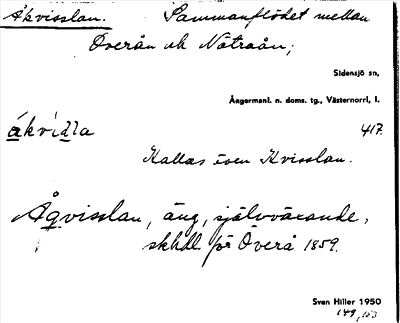 Åkvisslan. Sammanflödet mellan
Överån och Nätraån;
Sidensjö sn,
Ångermanl. n. doms. tg., Västernorrl. l.
åkvidla 417.
Kallas även Kvisslan.
Åqvisslan, äng, självväxande,
skhdl för Överå 1859.
Sven Hiller 1950
149, 163